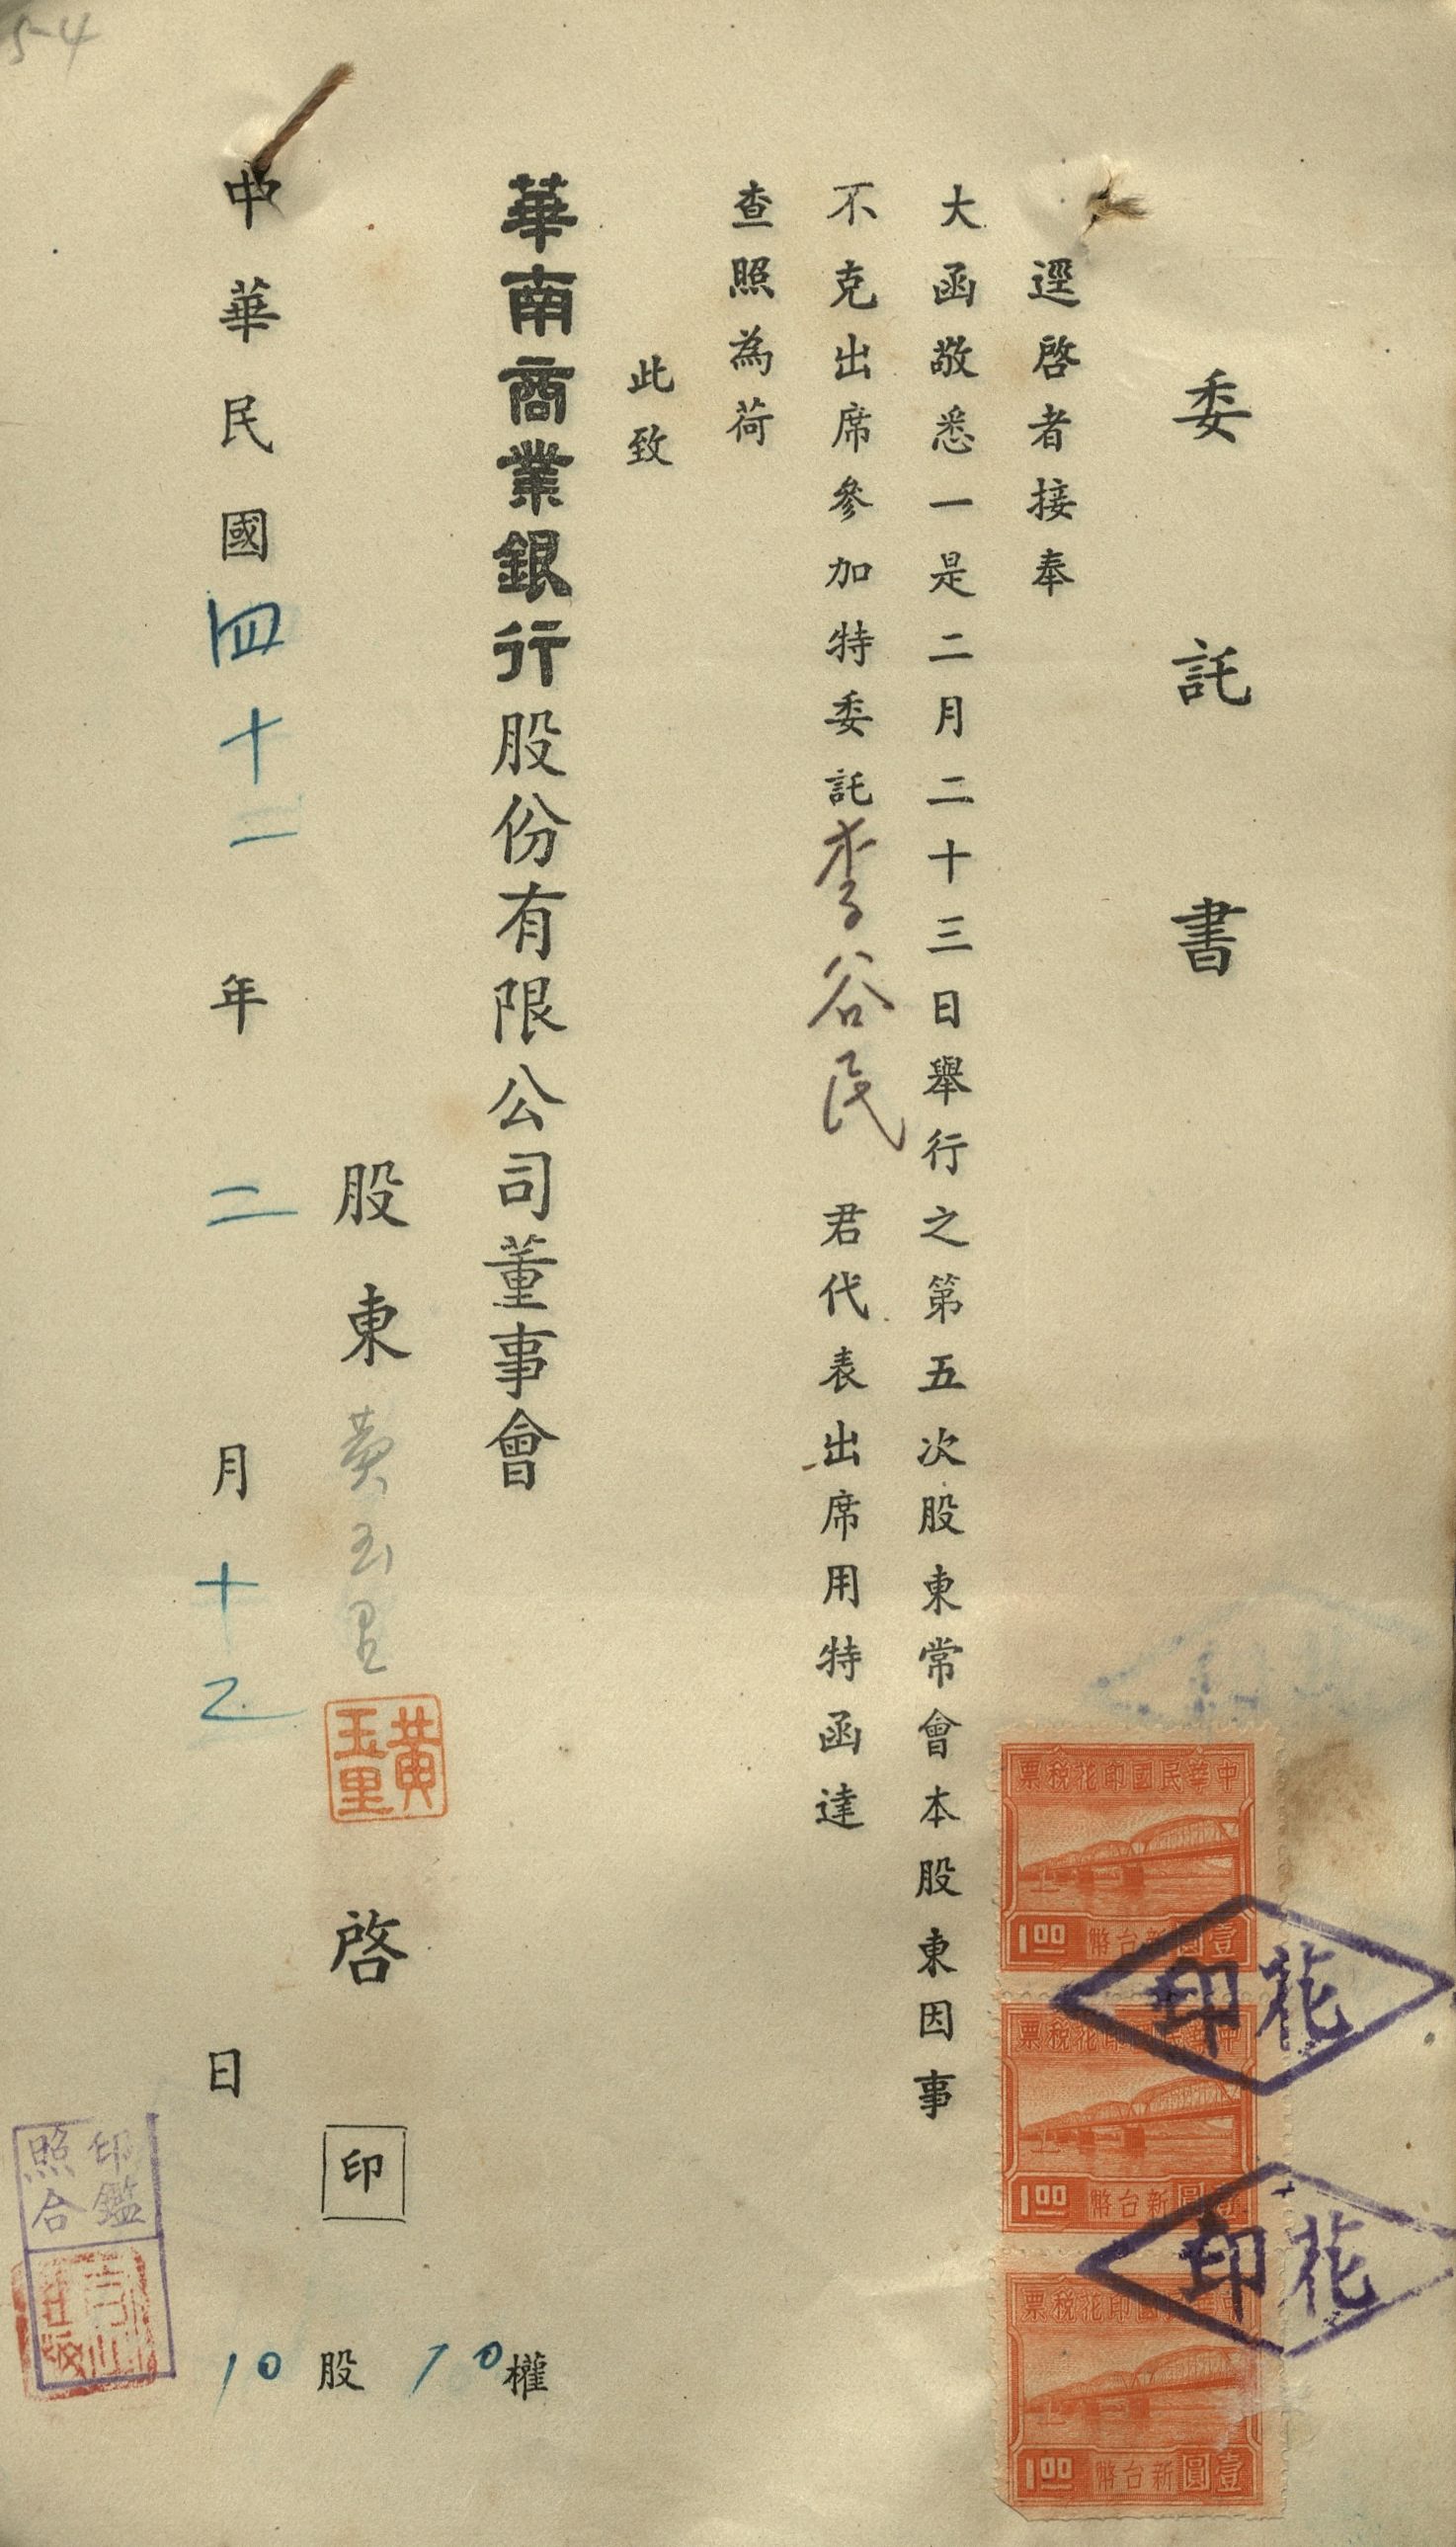 委託書
逕啓者接奉
大函敬悉一是二月二十三日舉行之第五次股東常會本股東因事
不克出席參加特委託李谷民君代表出席用特函達
查照為荷
此致
華南商業銀行股份有限公司董事會
股東黃玉里啓印
中華民國四十二年二月十乙日
10股10權
黃玉里
印鑑照合
中華民國印花税票
1.00
新台幣壹圓
中華民國印花税票
1.00
新台幣壹圓
中華民國印花税票
1.00
新台幣壹圓
花印
花印
5-4